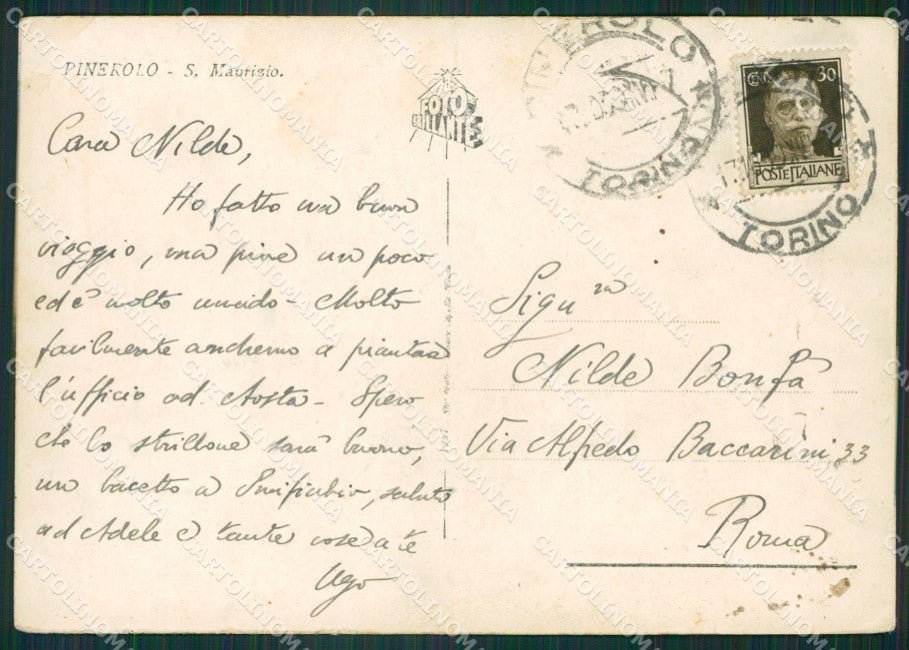 PINEROLO - S. Maurizio.
FOTO
BRILLANTE
PINEROLO
TORINO
CENT. 30
POSTE ITALIANE
TORINO
Cara Nilde,
Ho fatto un buon
viaggio, ma piove un poco
ed è molto umido - Molto
facilmente andremo a piantare
l'ufficio ad Aosta - Spero
che lo strillone sarà buono,
un bacetto a saluti
ad Adele e tante cose a te
Ugo
Sigra
Nilde Bonfà
Via Alfredo Baccarini, 33
Roma
CARTOLINOMANIA